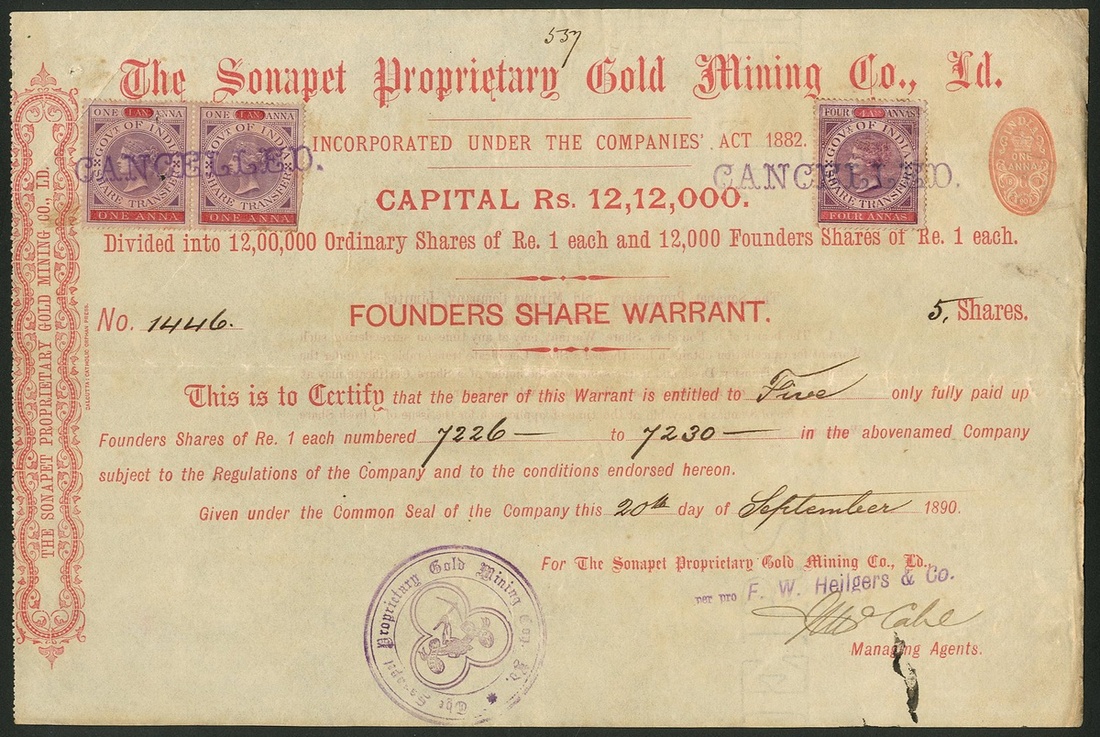 537
The Sonapet Proprietary Gold Mining Co., Ld.
ONE 1 AN ANNA
GOVT OF INDIA
SHARE TRANSFER
ONE ANNA
ONE 1 AN ANNA
GOVT OF INDIA
SHARE TRANSFER
ONE ANNA
CANCELLED.
INCORPORATED UNDER THE COMPANIES' ACT 1882.
FOUR 4 AS ANNAS
GOVT OF INDIA
SHARE TRANSFER
FOUR ANNAS
CANCELLED.
INDIA
ONE
ANNA
CAPITAL Rs. 12,12,000.
Divided into 12,00,000 Ordinary Shares of Re. 1 each and 12,000 Founders Shares of Re. 1 each.
No. 1446.
FOUNDERS SHARE WARRANT.
5, Shares.
This is to Certify that the bearer of this Warrant is entitled to Five only fully paid up
Founders Shares of Re. 1 each numbered 7226— to 7230— in the abovenamed Company
subject to the Regulations of the Company and to the conditions endorsed hereon.
Given under the Common Seal of the Company this 20th day of September 1890.
For The Sonapet Proprietary Gold Mining Co., Ld.,
per pro F. W. Heilgers & Co.
Managing Agents.
The Sonapet Proprietary Gold Mining Coy. Ld.
THE SONAPET PROPRIETARY GOLD MINING CO., LD.
CALCUTTA: CATHOLIC ORPHAN PRESS.